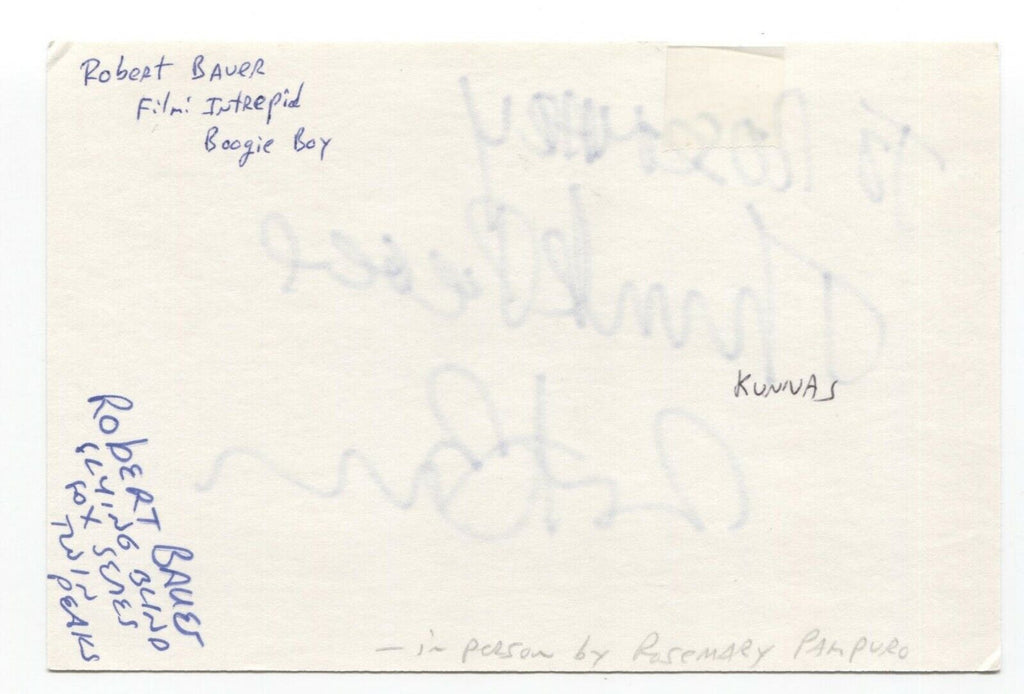 Robert Bauer
Film: Intrepid
Boogie Boy
To Rosemary
KUNNAS
Robert Bauer
Flying Blind
Fox Series
Twin
Peaks
— in person by Rosemary Pampuro